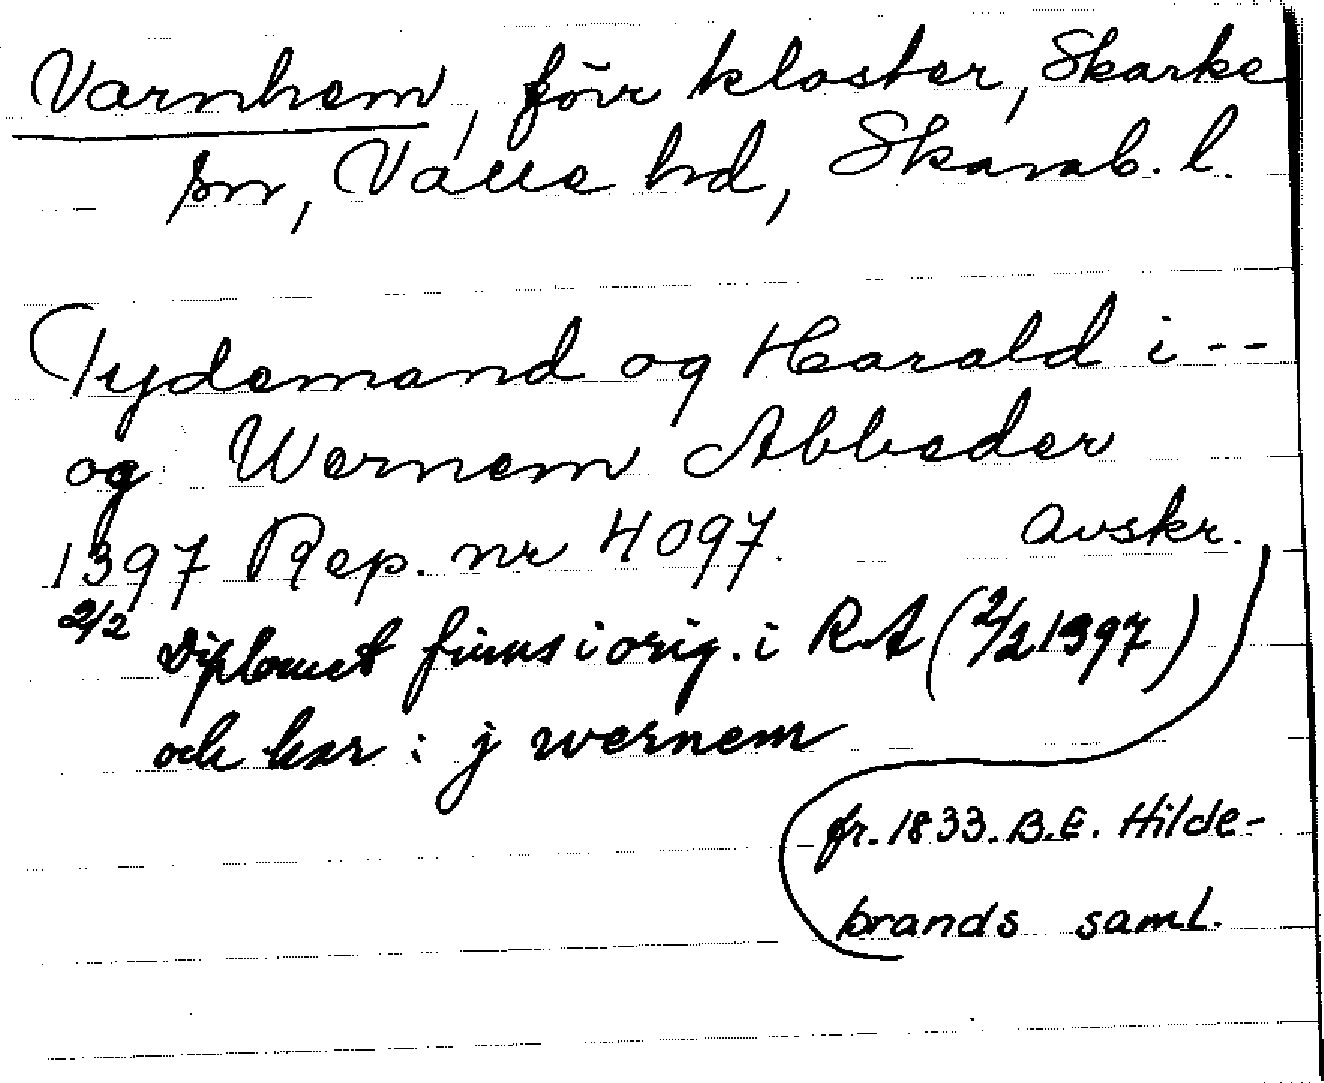 Varnhem, förr kloster, Skarke
sn, Valle hd, Skarab. l.
Tydemand og Harald i --
og Wernem Abbeder
1397 Rep. nr 4097. avskr.
2/2 Diplomet finns i orig. i RA (2/2 1397)
och har : j wernem
fr. 1833. B.E. Hilde-
brands saml.